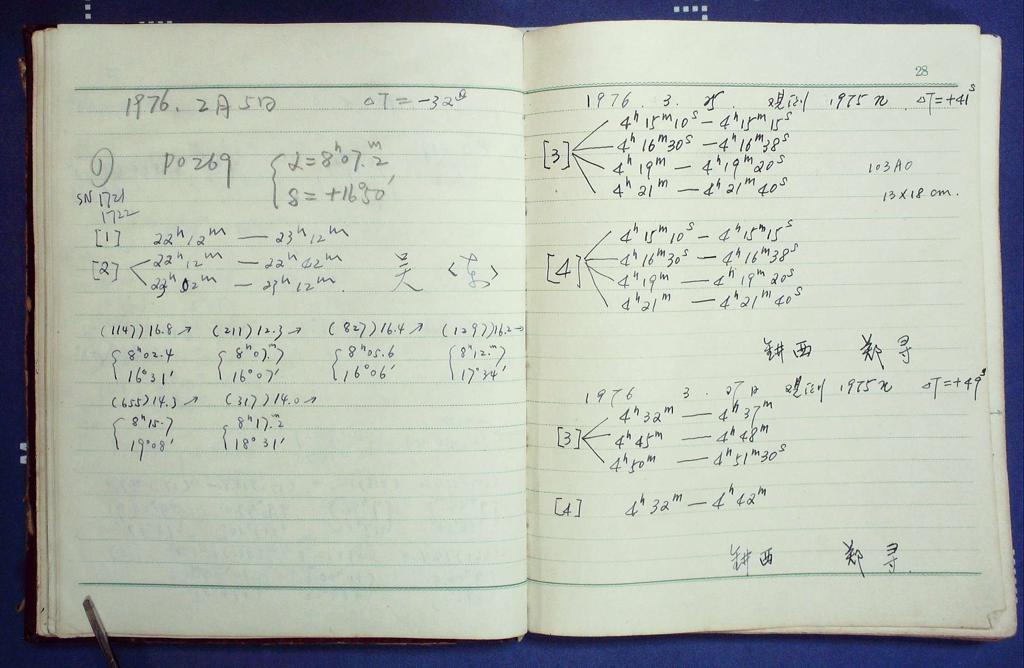 1976. 2月5日 ΔT=-32ˢ
① PO269 { α=8ʰ07.ᵐ2
δ=+16°50′
SN 1721
1722
[1] 22ʰ12ᵐ — 23ʰ12ᵐ
[2] 22ʰ12ᵐ — 22ʰ42ᵐ
吴 〈东〉
(1147)16.8↗ (211)12.3↗ (827)16.4↗ (1297)16.2→
{ 8ʰ02.4 { 8ʰ07.ᵐ7 { 8ʰ05.6 { 8ʰ12.ᵐ7
16°31′ 16°07′ 16°06′ 17°34′
(655)14.3↗ (317)14.0↗
{ 8ʰ15.7 { 8ʰ17.ᵐ2
19°08′ 18°31′
28
1976. 3. 25. 观测 1975n ΔT=+41ˢ
[3] 4ʰ15ᵐ10ˢ — 4ʰ15ᵐ15ˢ
4ʰ16ᵐ30ˢ — 4ʰ16ᵐ38ˢ
4ʰ19ᵐ — 4ʰ19ᵐ20ˢ 103AO
4ʰ21ᵐ — 4ʰ21ᵐ40ˢ 13×18 cm.
[4] 4ʰ15ᵐ10ˢ — 4ʰ15ᵐ15ˢ
4ʰ16ᵐ30ˢ — 4ʰ16ᵐ38ˢ
4ʰ19ᵐ — 4ʰ19ᵐ20ˢ
4ʰ21ᵐ — 4ʰ21ᵐ40ˢ
西 郑 寻
1976 3. 27日 观测 1975n ΔT=+49ˢ
[3] 4ʰ32ᵐ — 4ʰ37ᵐ
4ʰ45ᵐ — 4ʰ48ᵐ
4ʰ50ᵐ — 4ʰ51ᵐ30ˢ
[4] 4ʰ32ᵐ — 4ʰ42ᵐ
西 郑 寻.